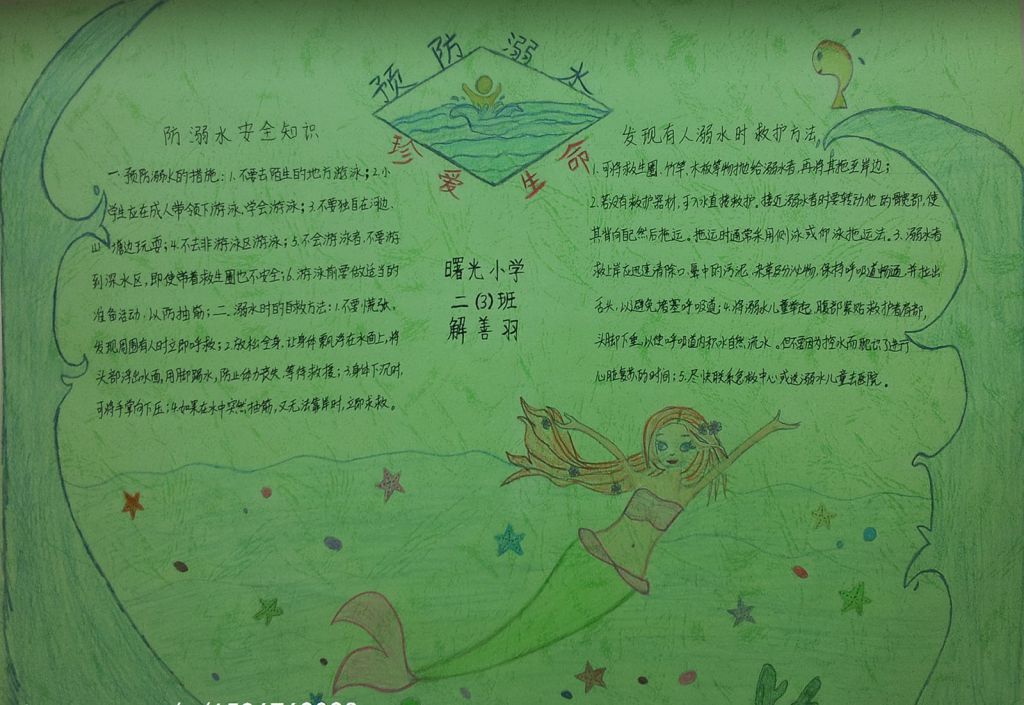 预防溺水
珍爱生命
防溺水安全知识
一.预防溺水的措施:1.不要去陌生的地方游泳;2.小
学生应在成人带领下游泳.学会游泳;3.不要独自在河边、
山塘边玩耍;4.不去非游泳区游泳;5.不会游泳者,不要游
到深水区,即使带着救生圈也不安全;6.游泳前要做适当的
准备活动,以防抽筋;二.溺水时的自救方法:1.不要慌张,
发现周围有人时立即呼救;2.放松全身,让身体飘浮在水面上,将
头部浮出水面,用脚踢水,防止体力丧失,等待救援;3.身体下沉时,
可将手掌向下压;4.如果在水中突然抽筋,又无法靠岸时,立即求救。
曙光小学
二(3)班
解善羽
发现有人溺水时救护方法
1.可将救生圈、竹竿、木板等物抛给溺水者,再将其拖至岸边;
2.若没有救护器材,可入水直接救护。接近溺水者时要转动他的髋部,使
其背向自己然后拖运。拖运时通常采用侧泳或仰泳拖运法。3.溺水者
救上岸后迅速清除口、鼻中的污泥、杂草及分泌物,保持呼吸道畅通,并拉出
舌头,以避免堵塞呼吸道;4.将溺水儿童举起,腹部紧贴救护者肩部,
头脚下垂,以使呼吸道内积水自然流水。但不要因为控水而耽误了进行
心脏复苏的时间;5.尽快联系急救中心或送溺水儿童去医院。